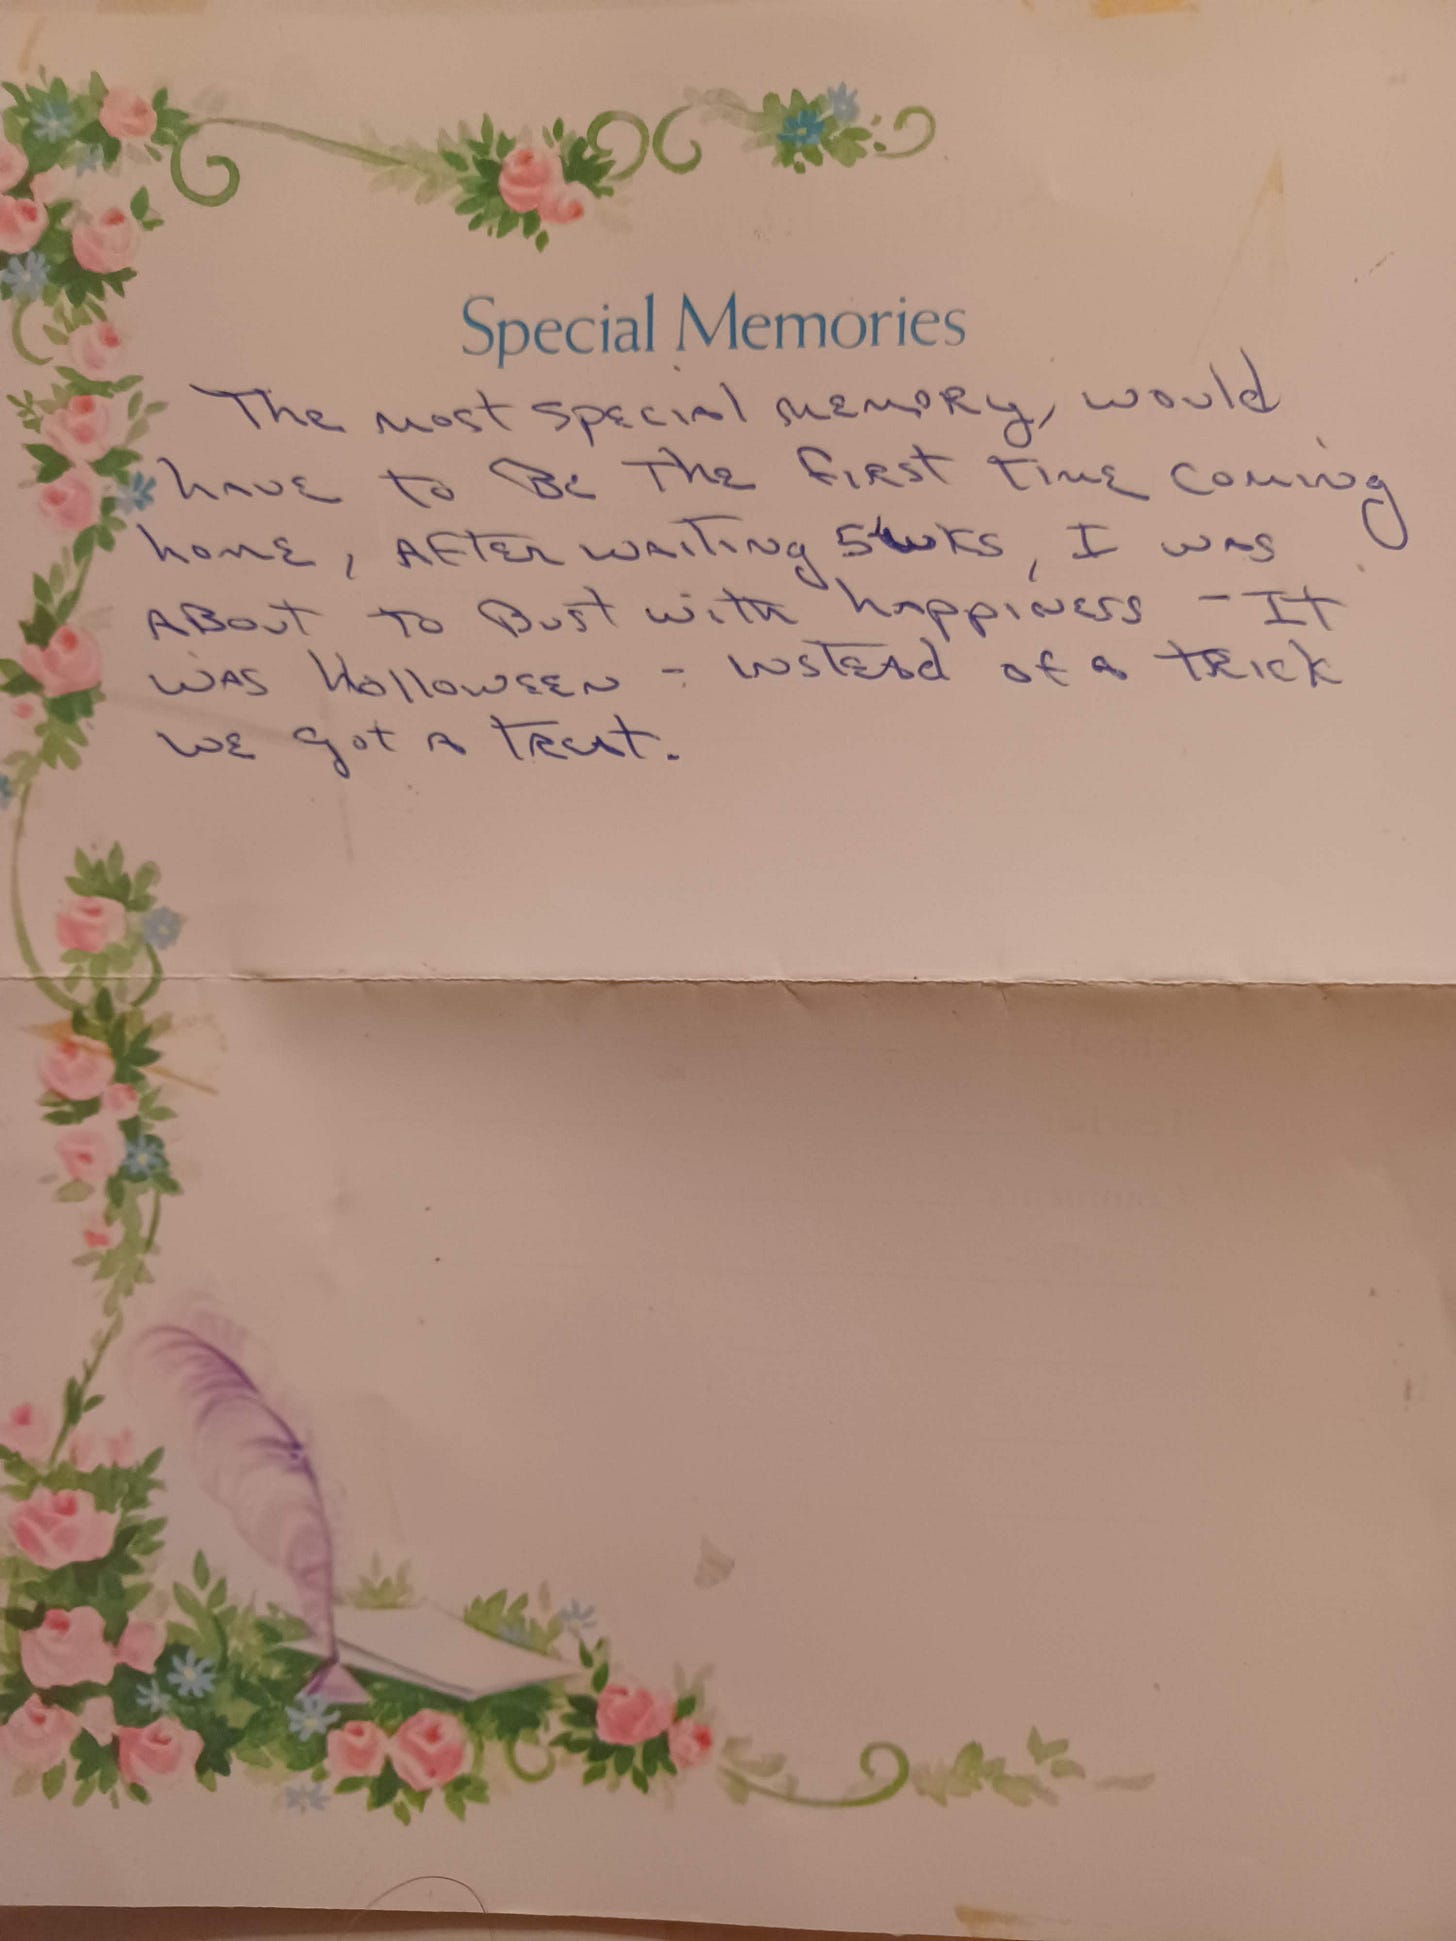 Special Memories
The most special memory, would
have to Be The first time coming
home, AFTER waiting 5 wks, I was
ABout to Bust with happiness - It
was Holloween - instead of a trick
we got a treat.